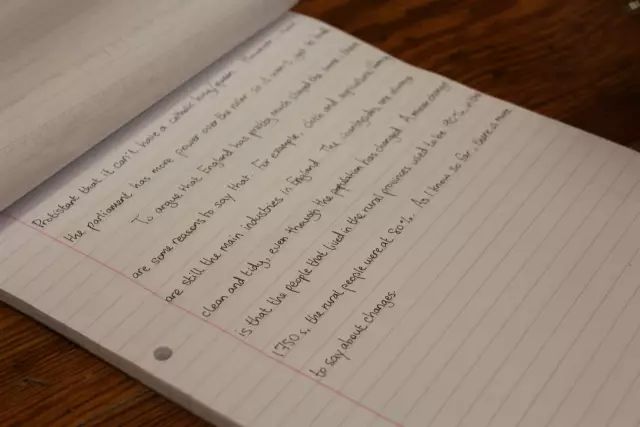 Protistant that it can't have a catholic king/queen.
the parliament has more power over the ruler so it won't get to
To argue that England has pretty much stayed the same, there
are some reasons to say that. For example, cloth and agriculture
are still the main industries in England. The countryside are always
clean and tidy, even though the population has changed. A minor
is that the people that lived in the rural provinces used to be 95%. in the
1750s, the rural people were at 80%. As I know so far, there is more
to say about changes.